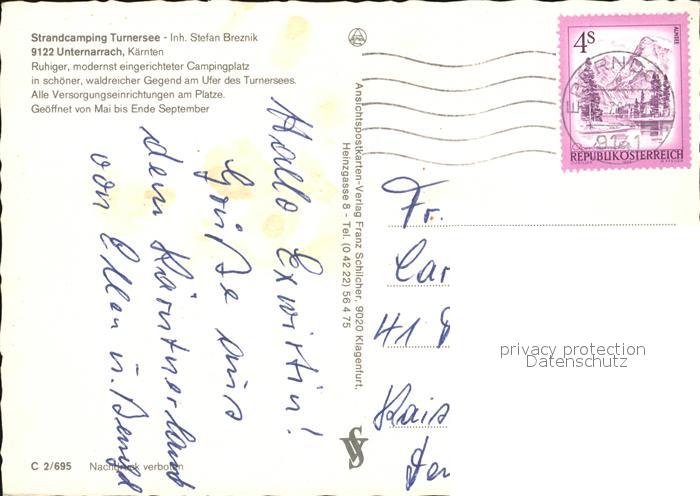 Strandcamping Turnersee - Inh. Stefan Breznik
9122 Unternarrach, Kärnten
Ruhiger, modernst eingerichteter Campingplatz
in schöner, waldreicher Gegend am Ufer des Turnersees.
Alle Versorgungseinrichtungen am Platze.
Geöffnet von Mai bis Ende September
Hallo Exwirtin!
Grüße aus
dem Kärntnerland
von Ellen u.
C 2/695 Nachdruck verboten
Ansichtspostkarten-Verlag Franz Schilcher, 9020 Klagenfurt,
Heinzgasse 8 - Tel. (0 42 22) 56 4 75
4S
ALMSEE
REPUBLIK ÖSTERREICH
9141
Fr.
Car
41
Kais
privacy protection
Datenschutz